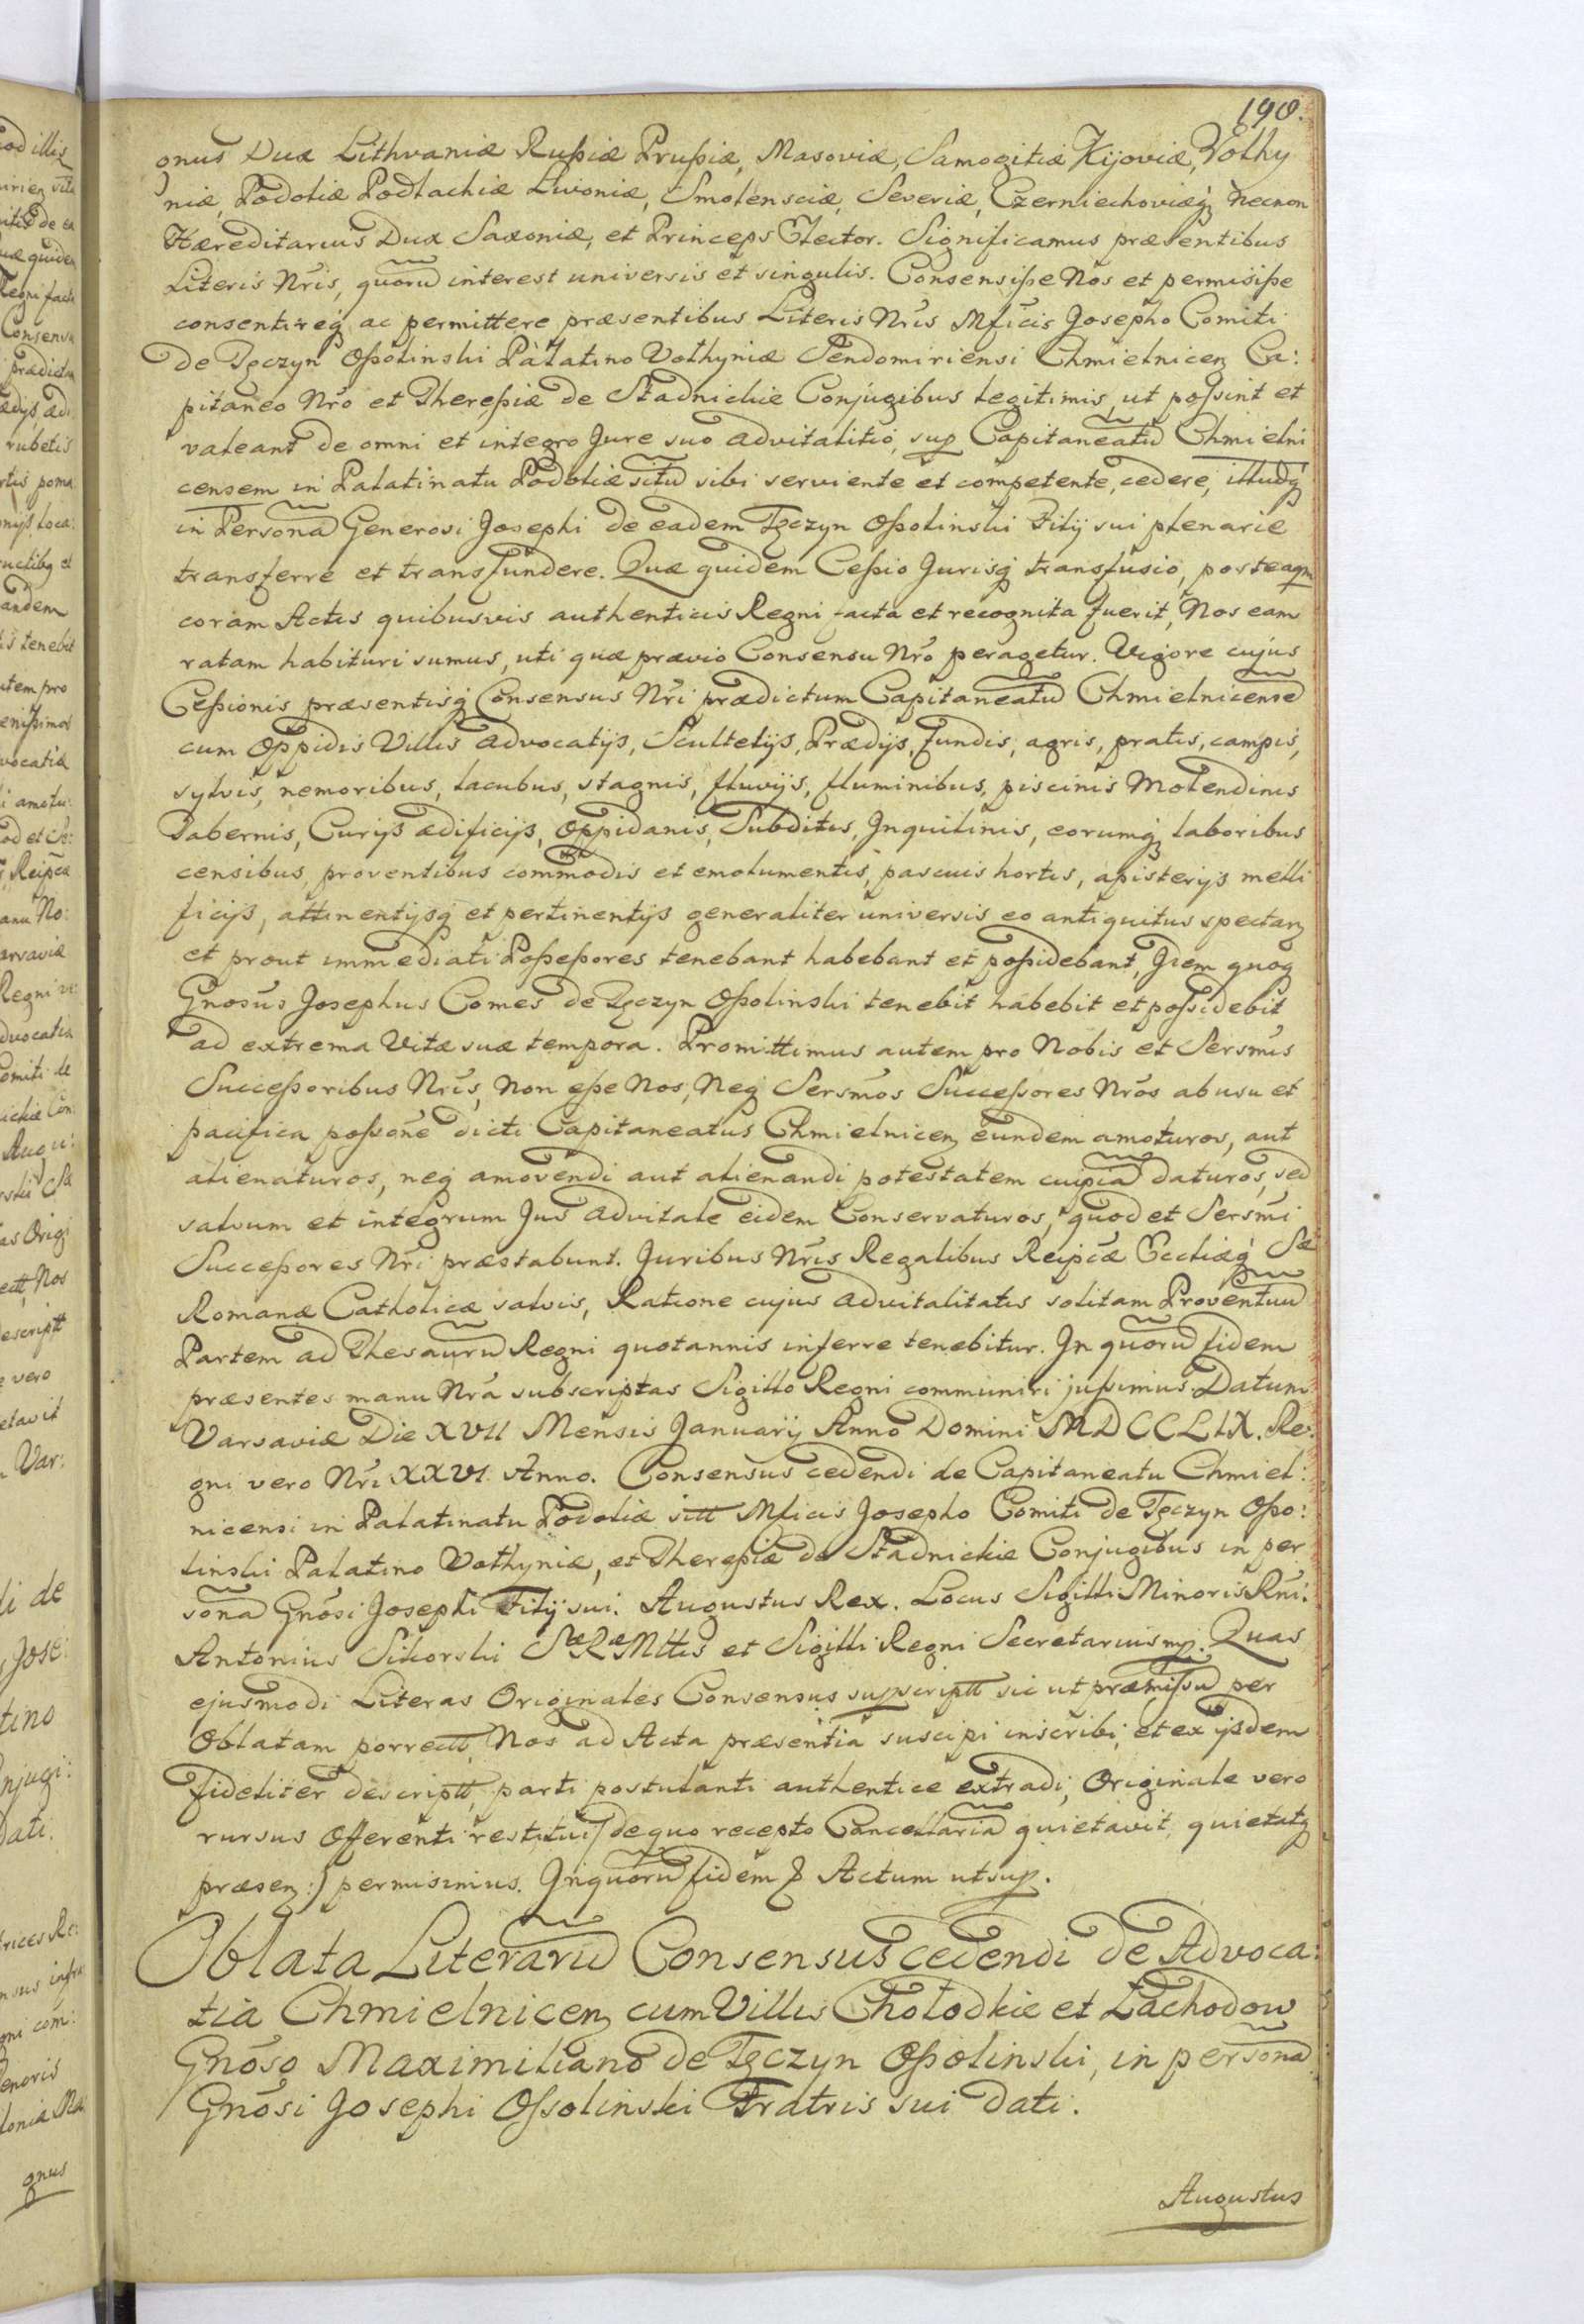 190.
gnus Dux Lithvaniæ Rußiæ Prußiæ, Masoviæ, Samogitiæ Kijoviæ, Volhy
niæ, Podoliæ Podlachiæ Livoniæ, Smolensciæ, Severiæ, Czerniechoviæq; necnon
Hæreditarius Dux Saxoniæ, et Princeps Elector. Significamus præsentibus
Literis Nris, quoru interest universis et singulis. Consensiße Nos et permisiße
consentireq; ac permittere præsentibus Literis Nris Mficis Josepho Comiti
de Tęczyn Oßolinski Palatino Volhyniæ Sendomiriensi Chmielnicen Ca:
pitaneo Nro et Thereßiæ de Stadnickie Conjugibus legitimis, ut poßint et
valeant de omni et integro Jure suo advitalitio, sup Capitaneatu Chmielni
censem in Palatinatu Podoliæ situ sibi serviente et competente, cedere, illudq;
in Persona Generosi Josephi de eadem Tęczyn Oßolinski Filij sui plenarie
transferre et transfundere. Quæ quidem Ceßio Jurisq; transfusio, posteaqm
coram Actis quibusvis authenticis Regni facta et recognita fuerit, Nos eam
ratam habituri sumus, uti quæ prævio Consensu Nro peragetur. Vigore cujus
Ceßionis præsentisq; Consensus Nri prædictum Capitaneatu Chmielnicense
cum Oppidis Villis advocatijs, Scultetijs, Prædijs, fundis, agris, pratis, campis,
sylvis, nemoribus, lacubus, stagnis, fluvijs, fluminibus, piscinis Molendinis
Tabernis, Curijs ædificijs, Oppidanis, Subditis, Jnquilinis, eorumq; laboribus
censibus, proventibus commodis et emolumentis, pascuis hortis, apisterijs melli
ficijs, attinentijsq; et pertinentijs generaliter universis eo antiquitus spectan
et prout immediati Poßeßores tenebant habebant et poßidebant, Jtem quoq;
Gnosus Josephus Comes de Tęczyn Oßolinski tenebit habebit et possidebit
ad extrema Vitæ suæ tempora. Promittimus autem pro Nobis et Sersmis
Succeßoribus Nris, Non eße Nos, Neq; Sersmos Successores Nros ab usu et
pacifica possone dicti Capitaneatus Chmielnicen eundem amoturos, aut
alienaturos, neq; amovendi aut alienandi potestatem cuipia daturos, sed
salvum et integrum Jus advitale eidem Conservaturos, quod et Sersmi
Succeßores Nri præstabunt. Juribus Nris Regalibus Reipcæ Eccliæq; Sæ
Romanæ Catholicæ salvis, Ratione cujus advitalitatis solitam Proventuu
Partem ad Thesauru Regni quotannis inferre tenebitur. Jn quoru fidem
præsentes manu Nra subscriptas Sigillo Regni communiri jußimus. Datum
Varsaviæ Die XVII Mensis Januarij Anno Domini MDCCLIX. Re:
gni vero Nri XXVI. Anno. Consensus cedendi de Capitaneatu Chmiel:
nicensi in Palatinatu Podoliæ sitt Mficis Josepho Comiti de Tęczyn Oßo:
linski Palatino Volhyniæ, et Thereßiæ de Stadnickie Conjugibus in per
sona Gnosi Josephi Filij sui. Augustus Rex. Locus Sigilli Minoris Rni.
Antonius Sikorski Sæ Ræ Mttis et Sigilli Regni Secretarius mp. Quas
ejusmodi Literas Originales Consensus supscriptt sic ut præmissu per
Oblatam porrectt, Nos ad Acta præsentia suscipi inscribi, et ex ijsdem
fideliter descriptt, parti postulanti authentice extradi, Originale vero
rursus Offerenti restitui /de quo recepto Cancellaria quietavit, quietatq;
præsen:/ permisimus. Jn quoru fidem & Actum ut sup.
Oblata Literaru Consensus cedendi de Advoca:
tia Chmielnicen cum Villis Chołodkie et Łachodow
Gnoso Maximiliano de Tęczyn Oßolinski, in persona
Gnosi Josephi Ossolinski Fratris sui dati.
Augustus